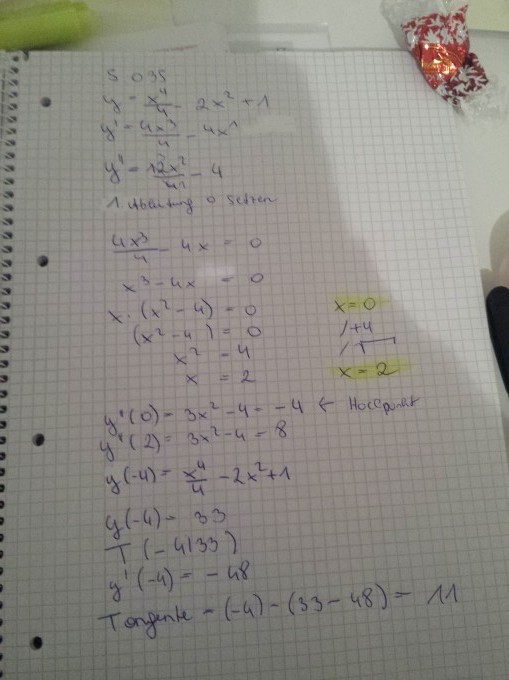 S 035
y = x⁴/4 - 2x² + 1
y' = 4x³/4 - 4x¹
y'' = 12x²/4 - 4
1 Ableitung 0 setzen
4x³/4 - 4x = 0
x³ - 4x = 0
x · (x² - 4) = 0 x = 0
(x² - 4) = 0 / +4
x² = 4 / √
x = 2 x = 2
y''(0) = 3x² - 4 = -4 ← Hochpunkt
y''(2) = 3x² - 4 = 8
y(-4) = x⁴/4 - 2x² + 1
y(-4) = 33
T (-4/33)
y'(-4) = -48
Tangente = (-4) - (33 - 48) = 11